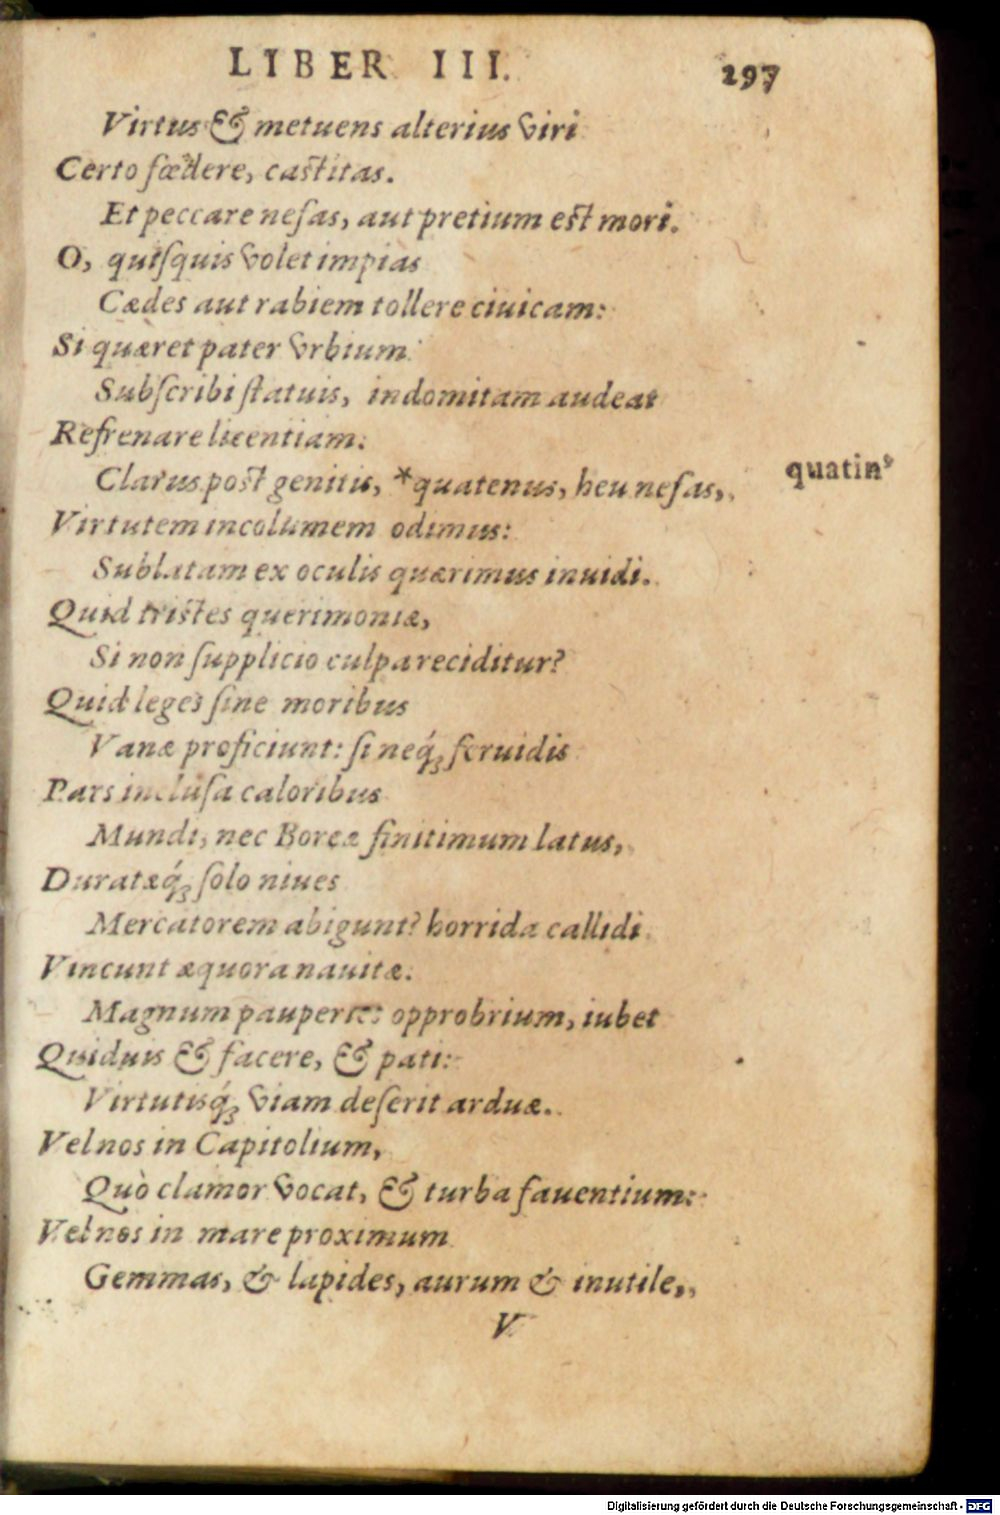 LIBER III. 297
Virtus & metuens alterius viri
Certo fœdere, castitas.
Et peccare nefas, aut pretium est mori.
O, quisquis volet impias
Cædes aut rabiem tollere ciuicam:
Si quæret pater vrbium
Subscribi statuis, indomitam audeat
Refrenare licentiam.
Clarus post genitis, *quatenus, heu nefas,
quatin⁹
Virtutem incolumem odimus:
Sublatam ex oculis quærimus inuidi.
Quid tristes querimoniæ,
Si non supplicio culpa reciditur?
Quid leges sine moribus
Vanæ proficiunt: si neq́; feruidis
Pars inclusa caloribus
Mundi, nec Boreæ finitimum latus,
Duratæq́; solo niues
Mercatorem abigunt? horrida callidi
Vincunt æquora nauitæ.
Magnum pauperies opprobrium, iubet
Quiduis & facere, & pati:
Virtutisq́; viam deserit arduæ.
Vel nos in Capitolium,
Quò clamor vocat, & turba fauentium:
Vel nos in mare proximum
Gemmas, & lapides, aurum & inutile,
V
Digitalisierung gefördert durch die Deutsche Forschungsgemeinschaft - DFG